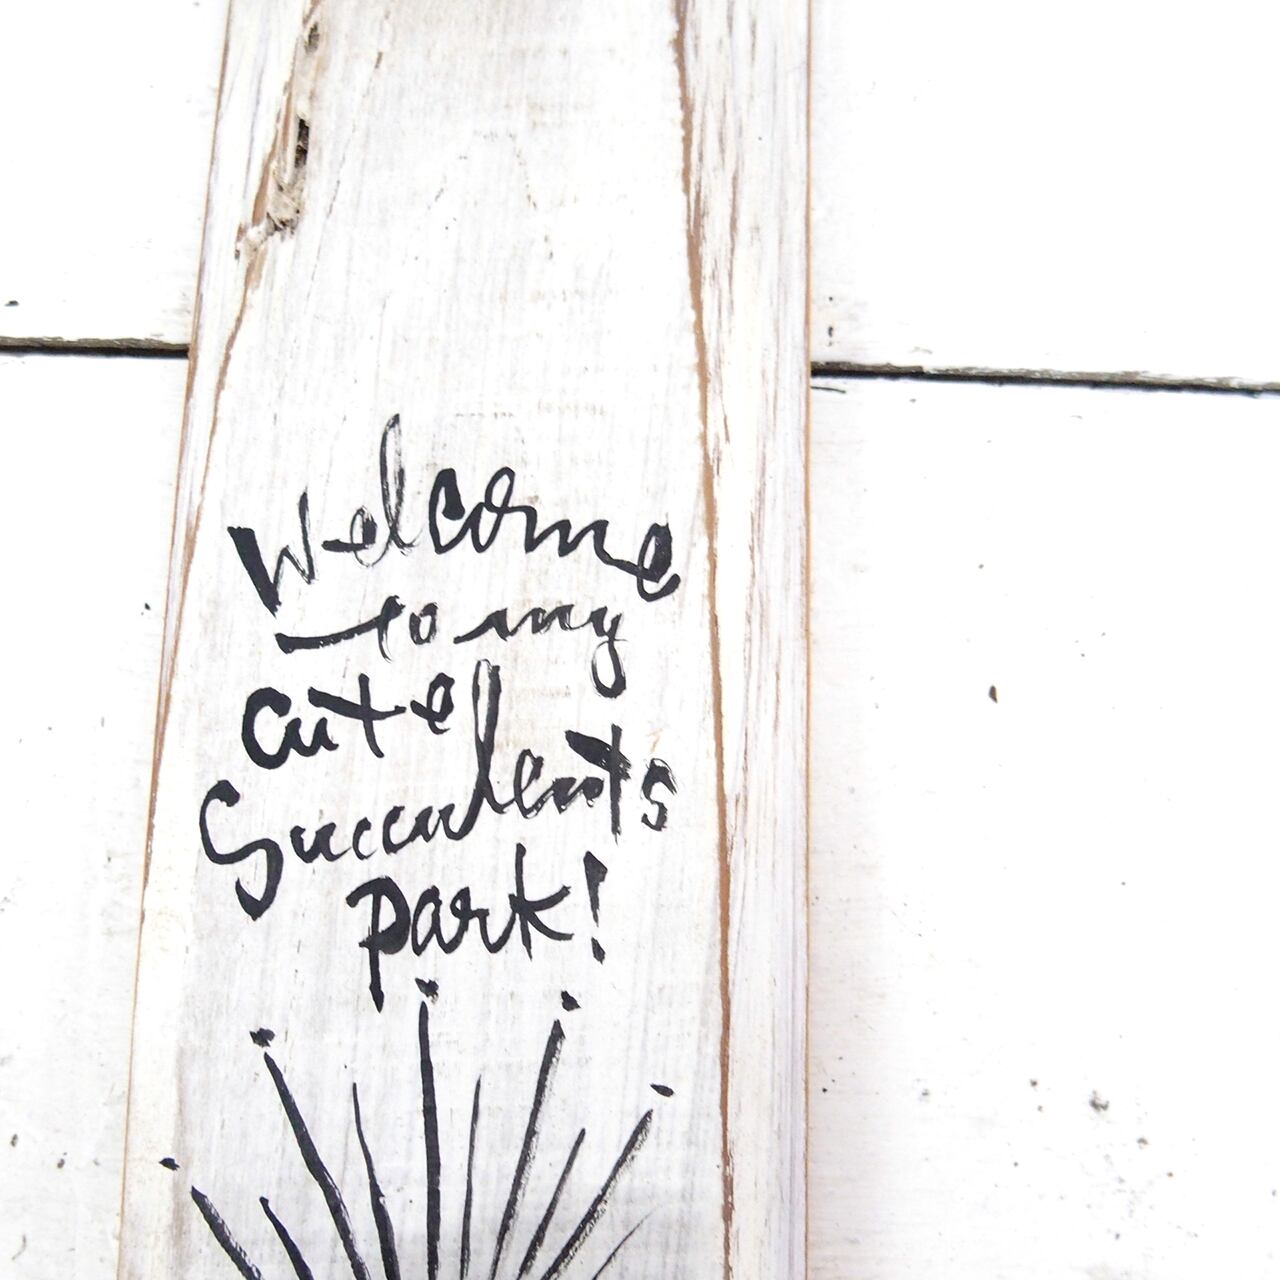 Welcome
to my
cute
Succulents
park!